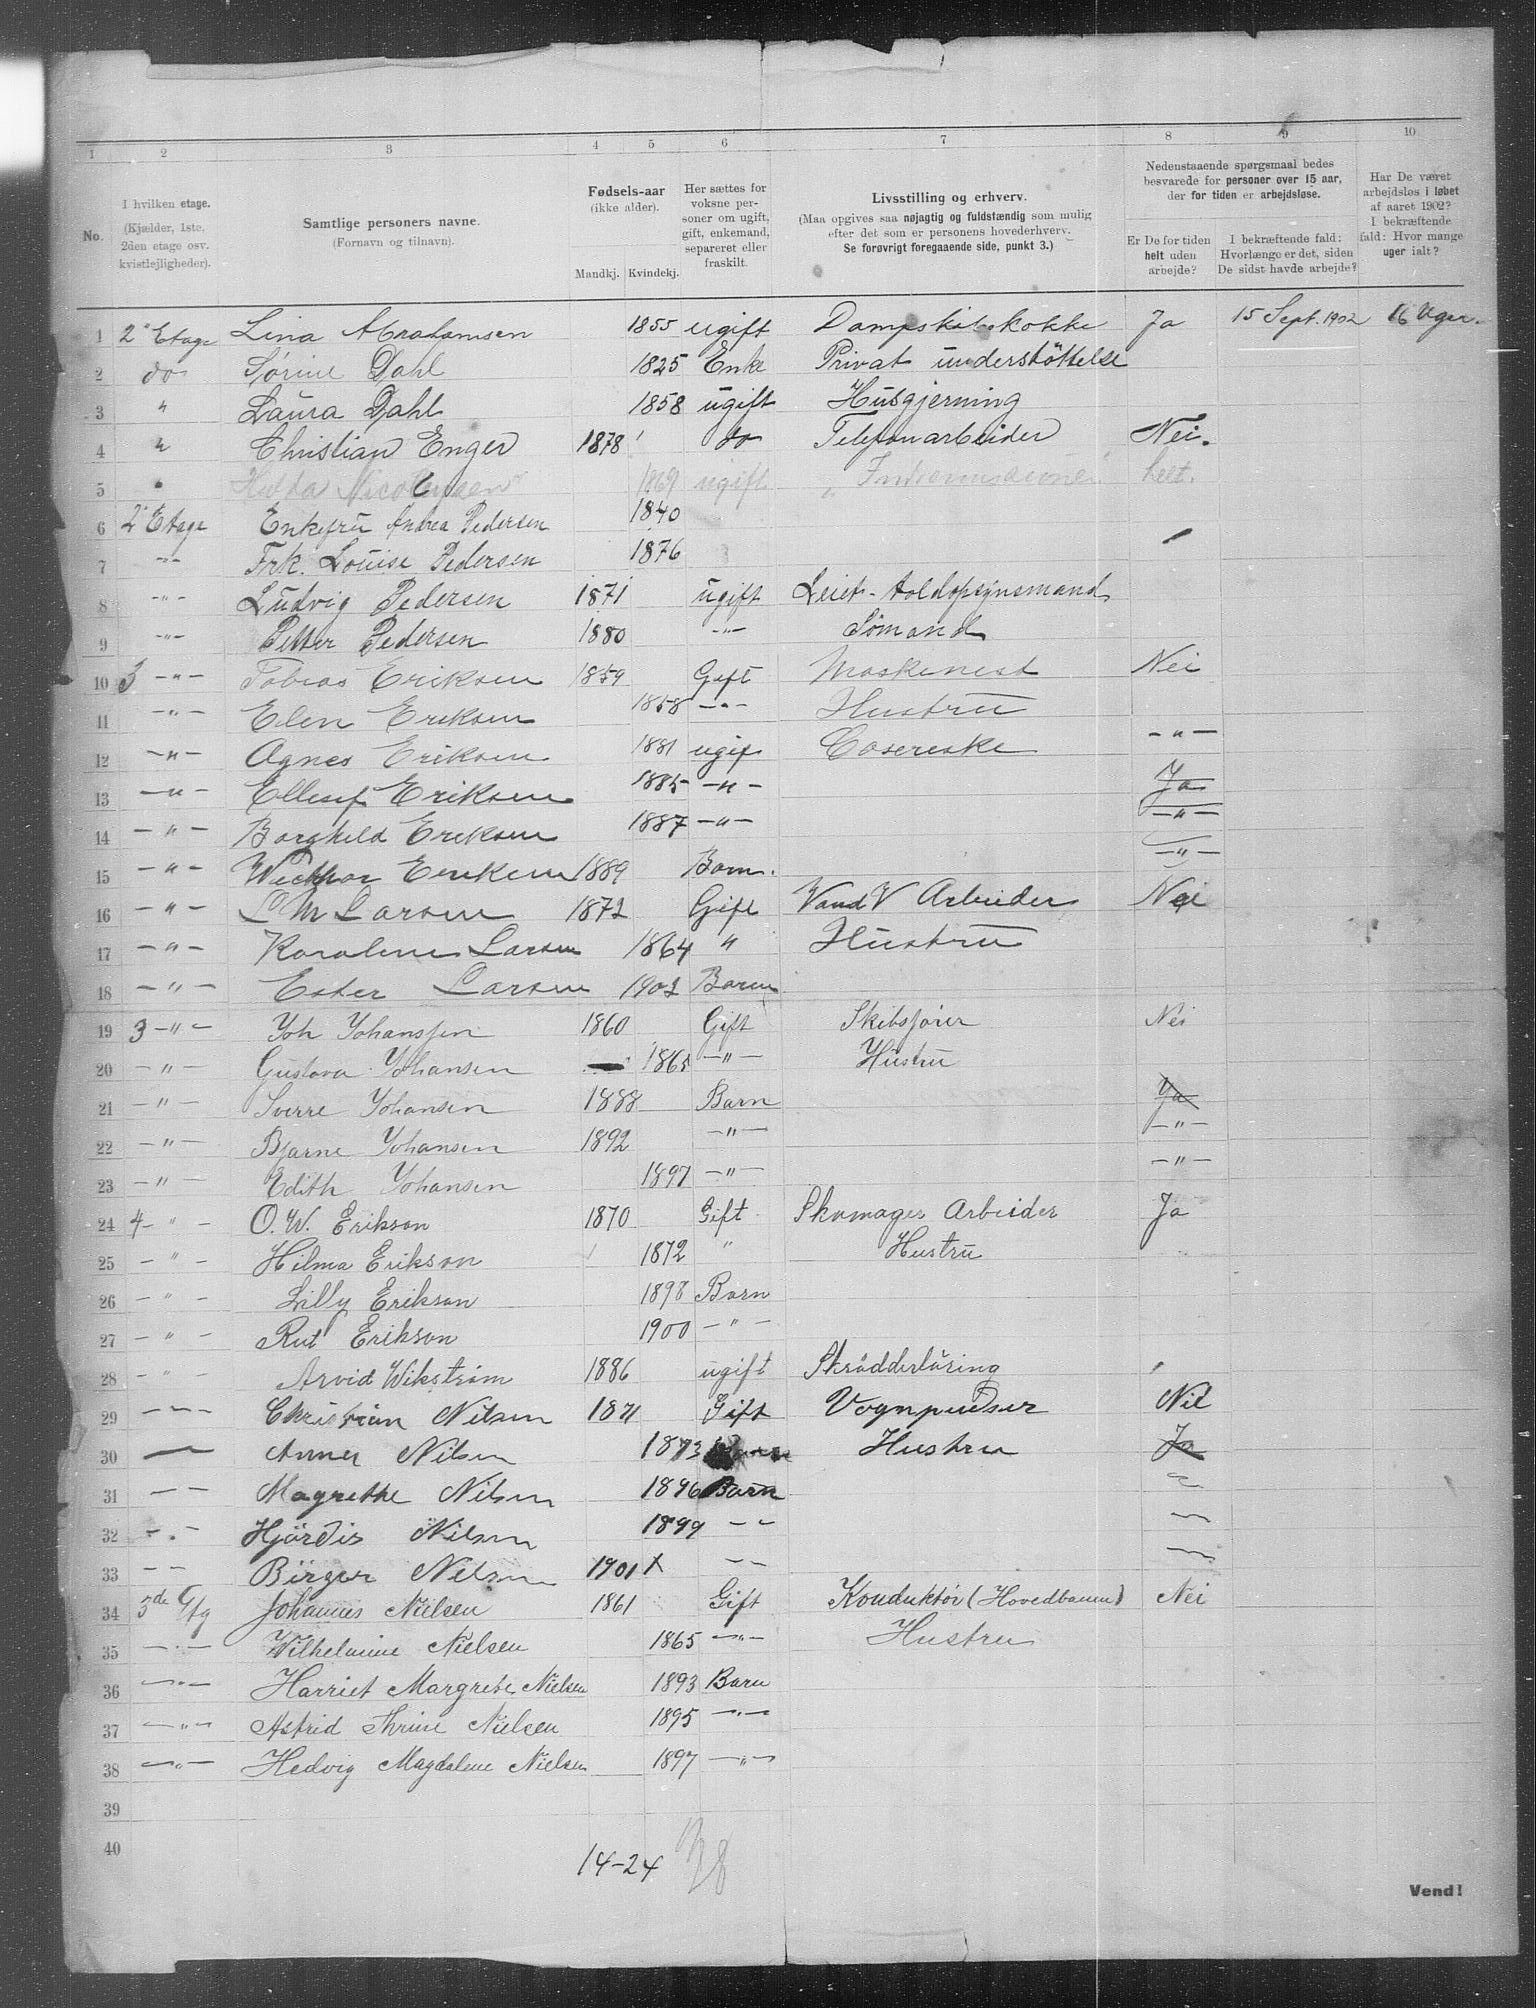 1 2 3 4 5 6 7 8 9 10
No.
I hvilken etage.
(Kjælder, 1ste, 2den etage osv. kvistlejligheder).
Samtlige personers navne.
(Fornavn og tilnavn).
Fødsels-aar
(ikke alder).
Mandkj. Kvindekj.
Her sættes for voksne personer om ugift, gift, enkemand, separeret eller fraskilt.
Livsstilling og erhverv.
(Maa opgives saa nøjagtig og fuldstændig som mulig efter det som er personens hovederhverv. Se forøvrigt foregaaende side, punkt 3.)
Nedenstaaende spørgsmaal bedes besvarede for personer over 15 aar, der for tiden er arbejdsløse.
Er De for tiden helt uden arbejde?
I bekræftende fald: Hvorlænge er det, siden De sidst havde arbejde?
Har De været arbejdsløs i løbet af aaret 1902? I bekræftende fald: Hvor mange uger ialt?
1 2' Etage Lina Abrahamsen 1855 ugift Dampskibskokke Ja 15 Sept. 1902 16 Uger.
2 do Sørine Dahl 1825 Enke Privat understöttelse
3 " Laura Dahl 1858 ugift Husgjerning
4 " Christian Enger 1878 do Telefonarbeider Nei.
5 " Hulda Nicolaysen 1869 ugift helt.
6 2' Etage Enkefru Andrea Pedersen 1840
7 -"- Frk. Louise Pedersen 1876
8 -"- Ludvig Pedersen 1871 ugift Leiet-toldopsynsmand
9 -"- Petter Pedersen 1880 -"- Sömand
10 3 -"- Tobias Eriksen 1859 Gift Maskenest Nei
11 -"- Elen Eriksen 1858 -"- Hustru
12 -"- Agnes Eriksen 1881 ugif -"-
13 -"- Ellesef Eriksen 1885 -"- Ja
14 -"- Borghild Eriksen 1887 -"- -"-
15 -"- Eriksen 1889 Barn. -"-
16 -"- L M Larsen 1872 Gift Vand V Arbeider Nei
17 -"- Karoline Larsen 1864 " Hustru
18 -"- Ester Larsen 1902 Barn
19 3 -"- Joh Johansen 1860 Gift Skibsfører Nei
20 -"- Gustava Johansen 1865 -"- Hustru
21 -"- Sverre Johansen 1888 Barn Ja
22 -"- Bjarne Johansen 1892 -"- -"-
23 -"- Edith Johansen 1897 -"- -"-
24 4 -"- O. W. Erikson 1870 Gift Skomager Arbeider Ja
25 -"- Hilma Erikson 1872 " Hustru
26 -"- Lilly Erikson 1898 Barn
27 -"- Rut Erikson 1900 -"-
28 -"- Arvid Wikström 1886 ugift Skrädderläring
29 -"- Christian Nilsen 1871 Gift Vognpudser Nei
30 — Anna Nilsen 1873 Hustru Ja
31 -- Magrethe Nilsen 1896 Barn
32 -.- Hjördis Nilsen 1899 --
33 -- Birger Nilsen 1901 x --
34 3de Etg Johannes Nielsen 1861 Gift Konduktör (Hovedbanen) Nei
35 -"- Wilhelmine Nielsen 1865 -"- Hustru
36 -"- Harriet Margrete Nielsen 1893 Barn
37 -"- Astrid Thrine Nielsen 1895 -"-
38 -"- Hedvig Magdalene Nielsen 1897 -"-
39
40
14-24 38
Vend!